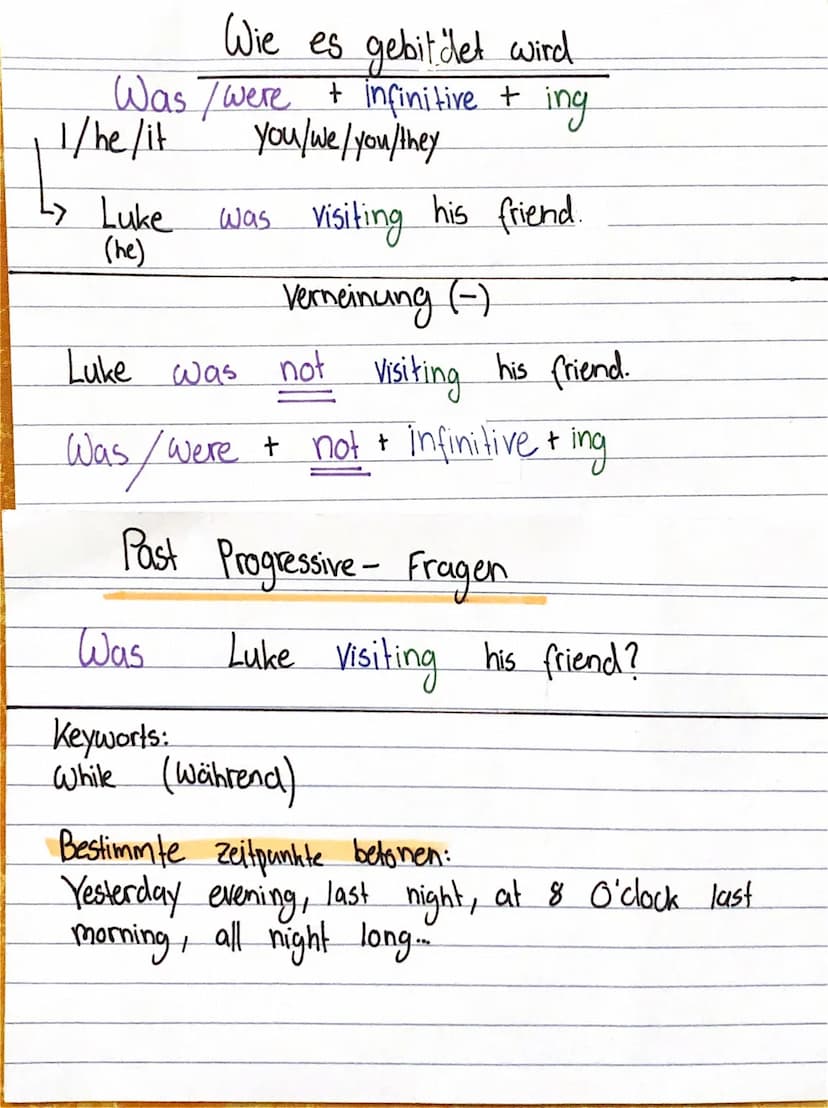 Wie es gebildet wird
Was/were + infinitive + ing
I/he/it you/we/you/they
Luke was visiting his friend.
(he)
Verneinung (-)
Luke was not visiting his friend.
Was/were + not + infinitive + ing
Past Progressive- Fragen
Was Luke visiting his friend?
Keyworts:
While (Während)
Bestimmte zeitpunkte betonen:
Yesterday evening, last night, at 8 O'clock last
morning, all night long...